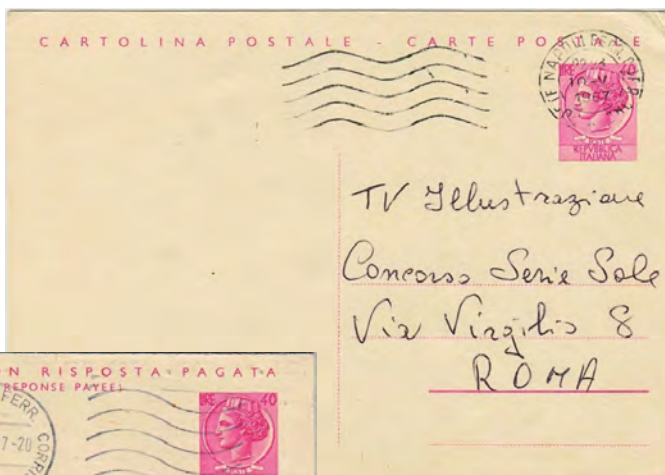 CARTOLINA POSTALE - CARTE POSTALE
LIRE 40
1967
REPVBBLICA
ITALIANA
TV Illustrazione
Concorso Serie Sole
Via Virgilio 8
ROMA
N RISPOSTA PAGATA
REPONSE PAYEE)
FERR. CORR
7-20
LIRE 40